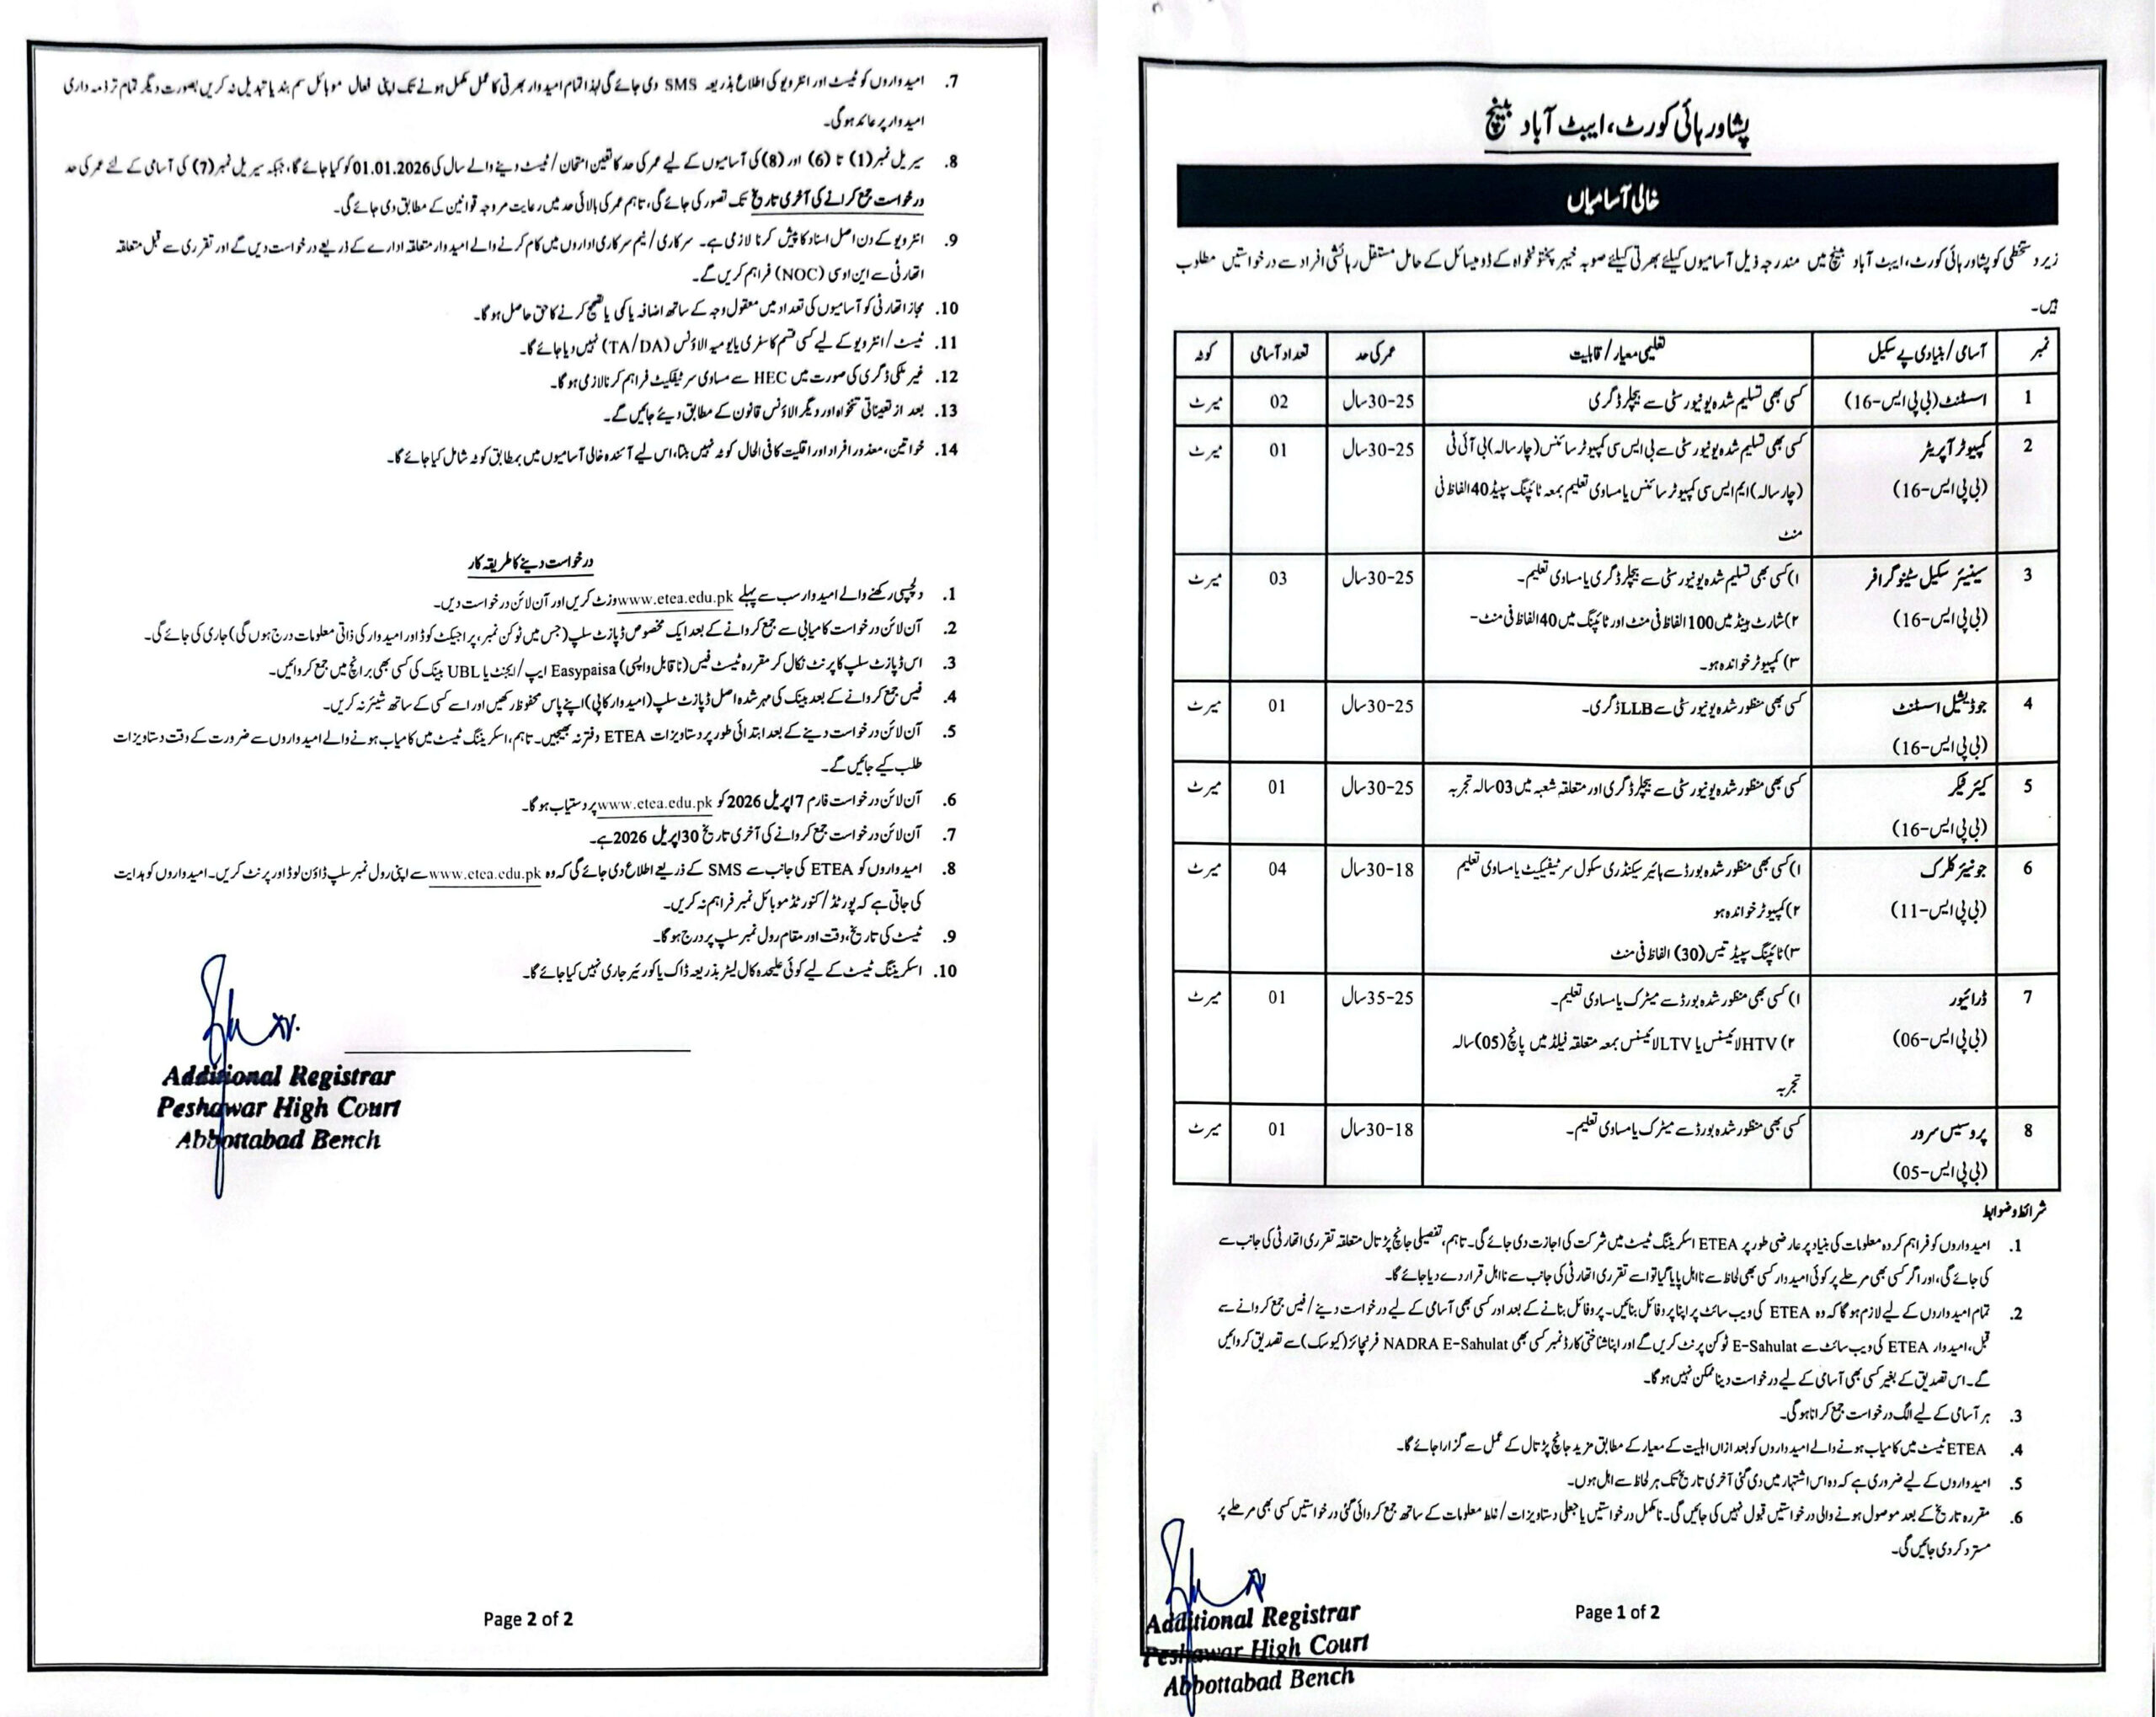 پشاور ہائی کورٹ، ایبٹ آباد بینچ
خالی آسامیاں
زیر دستخطی کو پشاور ہائی کورٹ، ایبٹ آباد بینچ میں مندرجہ ذیل آسامیوں کیلئے بھرتی کیلئے صوبہ خیبر پختونخواہ کے ڈومیسائل کے حامل مستقل رہائشی افراد سے درخواستیں مطلوب
ہیں۔
نمبر آسامی/بنیادی پے سکیل تعلیمی معیار/قابلیت عمر کی حد تعداد آسامی کوٹہ
1 اسسٹنٹ (بی پی ایس-16) کسی بھی تسلیم شدہ یونیورسٹی سے بیچلر ڈگری 25-30سال 02 میرٹ
2 کمپیوٹر آپریٹر کسی بھی تسلیم شدہ یونیورسٹی سے بی ایس سی کمپیوٹر سائنس (چار سالہ) بی آئی ٹی 25-30سال 01 میرٹ
(بی پی ایس-16) (چار سالہ) ایم ایس سی کمپیوٹر سائنس یا مساوی تعلیم بمعہ ٹائپنگ سپیڈ 40 الفاظ فی
منٹ
3 سینیئر سکیل سٹینوگرافر ۱) کسی بھی تسلیم شدہ یونیورسٹی سے بیچلر ڈگری یا مساوی تعلیم۔ 25-30سال 03 میرٹ
(بی پی ایس-16) ۲) شارٹ ہینڈ میں 100 الفاظ فی منٹ اور ٹائپنگ میں 40 الفاظ فی منٹ-
۳) کمپیوٹر خواندہ ہو۔
4 جوڈیشل اسسٹنٹ کسی بھی منظور شدہ یونیورسٹی سے LLB ڈگری۔ 25-30سال 01 میرٹ
(بی پی ایس-16)
5 کیئر ٹیکر کسی بھی منظور شدہ یونیورسٹی سے بیچلر ڈگری اور متعلقہ شعبہ میں 03 سالہ تجربہ 25-30سال 01 میرٹ
(بی پی ایس-16)
6 جونیئر کلرک ۱) کسی بھی منظور شدہ بورڈ سے ہائیر سیکنڈری سکول سرٹیفکیٹ یا مساوی تعلیم 18-30سال 04 میرٹ
(بی پی ایس-11) ۲) کمپیوٹر خواندہ ہو
۳) ٹائپنگ سپیڈ تیس (30) الفاظ فی منٹ
7 ڈرائیور ۱) کسی بھی منظور شدہ بورڈ سے میٹرک یا مساوی تعلیم۔ 25-35سال 01 میرٹ
(بی پی ایس-06) ۲) HTV لائیسنس یا LTV لائیسنس بمعہ متعلقہ فیلڈ میں پانچ (05) سالہ
تجربہ
8 پروسیس سرور کسی بھی منظور شدہ بورڈ سے میٹرک یا مساوی تعلیم۔ 18-30سال 01 میرٹ
(بی پی ایس-05)
شرائط و ضوابط
1. امیدواروں کو فراہم کردہ معلومات کی بنیاد پر عارضی طور پر ETEA اسکریننگ ٹیسٹ میں شرکت کی اجازت دی جائے گی۔ تاہم، تفصیلی جانچ پڑتال متعلقہ تقرری اتھارٹی کی جانب سے
کی جائے گی، اور اگر کسی بھی مرحلے پر کوئی امیدوار کسی بھی لحاظ سے نااہل پایا گیا تو اسے تقرری اتھارٹی کی جانب سے نااہل قرار دے دیا جائے گا۔
2. تمام امیدواروں کے لیے لازم ہوگا کہ وہ ETEA کی ویب سائٹ پر اپنا پروفائل بنائیں۔ پروفائل بنانے کے بعد اور کسی بھی آسامی کے لیے درخواست دینے/فیس جمع کروانے سے
قبل، امیدوار ETEA کی ویب سائٹ سے E-Sahulat ٹوکن پرنٹ کریں گے اور اپنا شناختی کارڈ نمبر کسی بھی NADRA E-Sahulat فرنچائز (کیوسک) سے تصدیق کروائیں
گے۔ اس تصدیق کے بغیر کسی بھی آسامی کے لیے درخواست دینا ممکن نہیں ہوگا۔
3. ہر آسامی کے لیے الگ درخواست جمع کرانا ہوگی۔
4. ETEA ٹیسٹ میں کامیاب ہونے والے امیدواروں کو بعد ازاں اہلیت کے معیار کے مطابق مزید جانچ پڑتال کے عمل سے گزارا جائے گا۔
5. امیدواروں کے لیے ضروری ہے کہ وہ اس اشتہار میں دی گئی آخری تاریخ تک ہر لحاظ سے اہل ہوں۔
6. مقررہ تاریخ کے بعد موصول ہونے والی درخواستیں قبول نہیں کی جائیں گی۔ نامکمل درخواستیں یا جعلی دستاویزات/غلط معلومات کے ساتھ جمع کروائی گئی درخواستیں کسی بھی مرحلے پر
مسترد کر دی جائیں گی۔
Page 1 of 2
Additional Registrar
Peshawar High Court
Abbottabad Bench
7. امیدواروں کو ٹیسٹ اور انٹرویو کی اطلاع بذریعہ SMS دی جائے گی لہذا تمام امیدوار بھرتی کا عمل مکمل ہونے تک اپنی فعال موبائل سم بند یا تبدیل نہ کریں بصورت دیگر تمام تر ذمہ داری
امیدوار پر عائد ہوگی۔
8. سیریل نمبر (1) تا (6) اور (8) کی آسامیوں کے لیے عمر کی حد کا تعین امتحان/ٹیسٹ دینے والے سال کی 01.01.2026 کو کیا جائے گا، جبکہ سیریل نمبر (7) کی آسامی کے لئے عمر کی حد
درخواست جمع کرانے کی آخری تاریخ تک تصور کی جائے گی، تاہم عمر کی بالائی حد میں رعایت مروجہ قوانین کے مطابق دی جائے گی۔
9. انٹرویو کے دن اصل اسناد کا پیش کرنا لازمی ہے۔ سرکاری/نیم سرکاری اداروں میں کام کرنے والے امیدوار متعلقہ ادارے کے ذریعے درخواست دیں گے اور تقرری سے قبل متعلقہ
اتھارٹی سے این او سی (NOC) فراہم کریں گے۔
10. مجاز اتھارٹی کو آسامیوں کی تعداد میں معقول وجہ کے ساتھ اضافہ یا کمی یا تصحیح کرنے کا حق حاصل ہوگا۔
11. ٹیسٹ/انٹرویو کے لیے کسی قسم کا سفری یا یومیہ الاؤنس (TA/DA) نہیں دیا جائے گا۔
12. غیر ملکی ڈگری کی صورت میں HEC سے مساوی سرٹیفکیٹ فراہم کرنا لازمی ہوگا۔
13. بعد از تعیناتی تنخواہ اور دیگر الاؤنس قانون کے مطابق دیئے جائیں گے۔
14. خواتین، معذور افراد اور اقلیت کا فی الحال کوٹہ نہیں بنتا، اس لیے آئندہ خالی آسامیوں میں بمطابق کوٹہ شامل کیا جائے گا۔
درخواست دینے کا طریقہ کار
1. دلچسپی رکھنے والے امیدوار سب سے پہلے www.etea.edu.pk وزٹ کریں اور آن لائن درخواست دیں۔
2. آن لائن درخواست کامیابی سے جمع کروانے کے بعد ایک مخصوص ڈپازٹ سلپ (جس میں ٹوکن نمبر، پراجیکٹ کوڈ اور امیدوار کی ذاتی معلومات درج ہوں گی) جاری کی جائے گی۔
3. اس ڈپازٹ سلپ کا پرنٹ نکال کر مقررہ ٹیسٹ فیس (ناقابل واپسی) Easypaisa ایپ/ایجنٹ یا UBL بینک کی کسی بھی برانچ میں جمع کروائیں۔
4. فیس جمع کروانے کے بعد بینک کی مہر شدہ اصل ڈپازٹ سلپ (امیدوار کاپی) اپنے پاس محفوظ رکھیں اور اسے کسی کے ساتھ شیئر نہ کریں۔
5. آن لائن درخواست دینے کے بعد ابتدائی طور پر دستاویزات ETEA دفتر نہ بھیجیں۔ تاہم، اسکریننگ ٹیسٹ میں کامیاب ہونے والے امیدواروں سے ضرورت کے وقت دستاویزات
طلب کیے جائیں گے۔
6. آن لائن درخواست فارم 17اپریل 2026 کو www.etea.edu.pk پر دستیاب ہوگا۔
7. آن لائن درخواست جمع کروانے کی آخری تاریخ 30اپریل 2026 ہے۔
8. امیدواروں کو ETEA کی جانب سے SMS کے ذریعے اطلاع دی جائے گی کہ وہ www.etea.edu.pk سے اپنی رول نمبر سلپ ڈاؤن لوڈ اور پرنٹ کریں۔ امیدواروں کو ہدایت
کی جاتی ہے کہ پورٹڈ/کنورٹڈ موبائل نمبر فراہم نہ کریں۔
9. ٹیسٹ کی تاریخ، وقت اور مقام رول نمبر سلپ پر درج ہوگا۔
10. اسکریننگ ٹیسٹ کے لیے کوئی علیحدہ کال لیٹر بذریعہ ڈاک یا کورئیر جاری نہیں کیا جائے گا۔
Additional Registrar
Peshawar High Court
Abbottabad Bench
Page 2 of 2